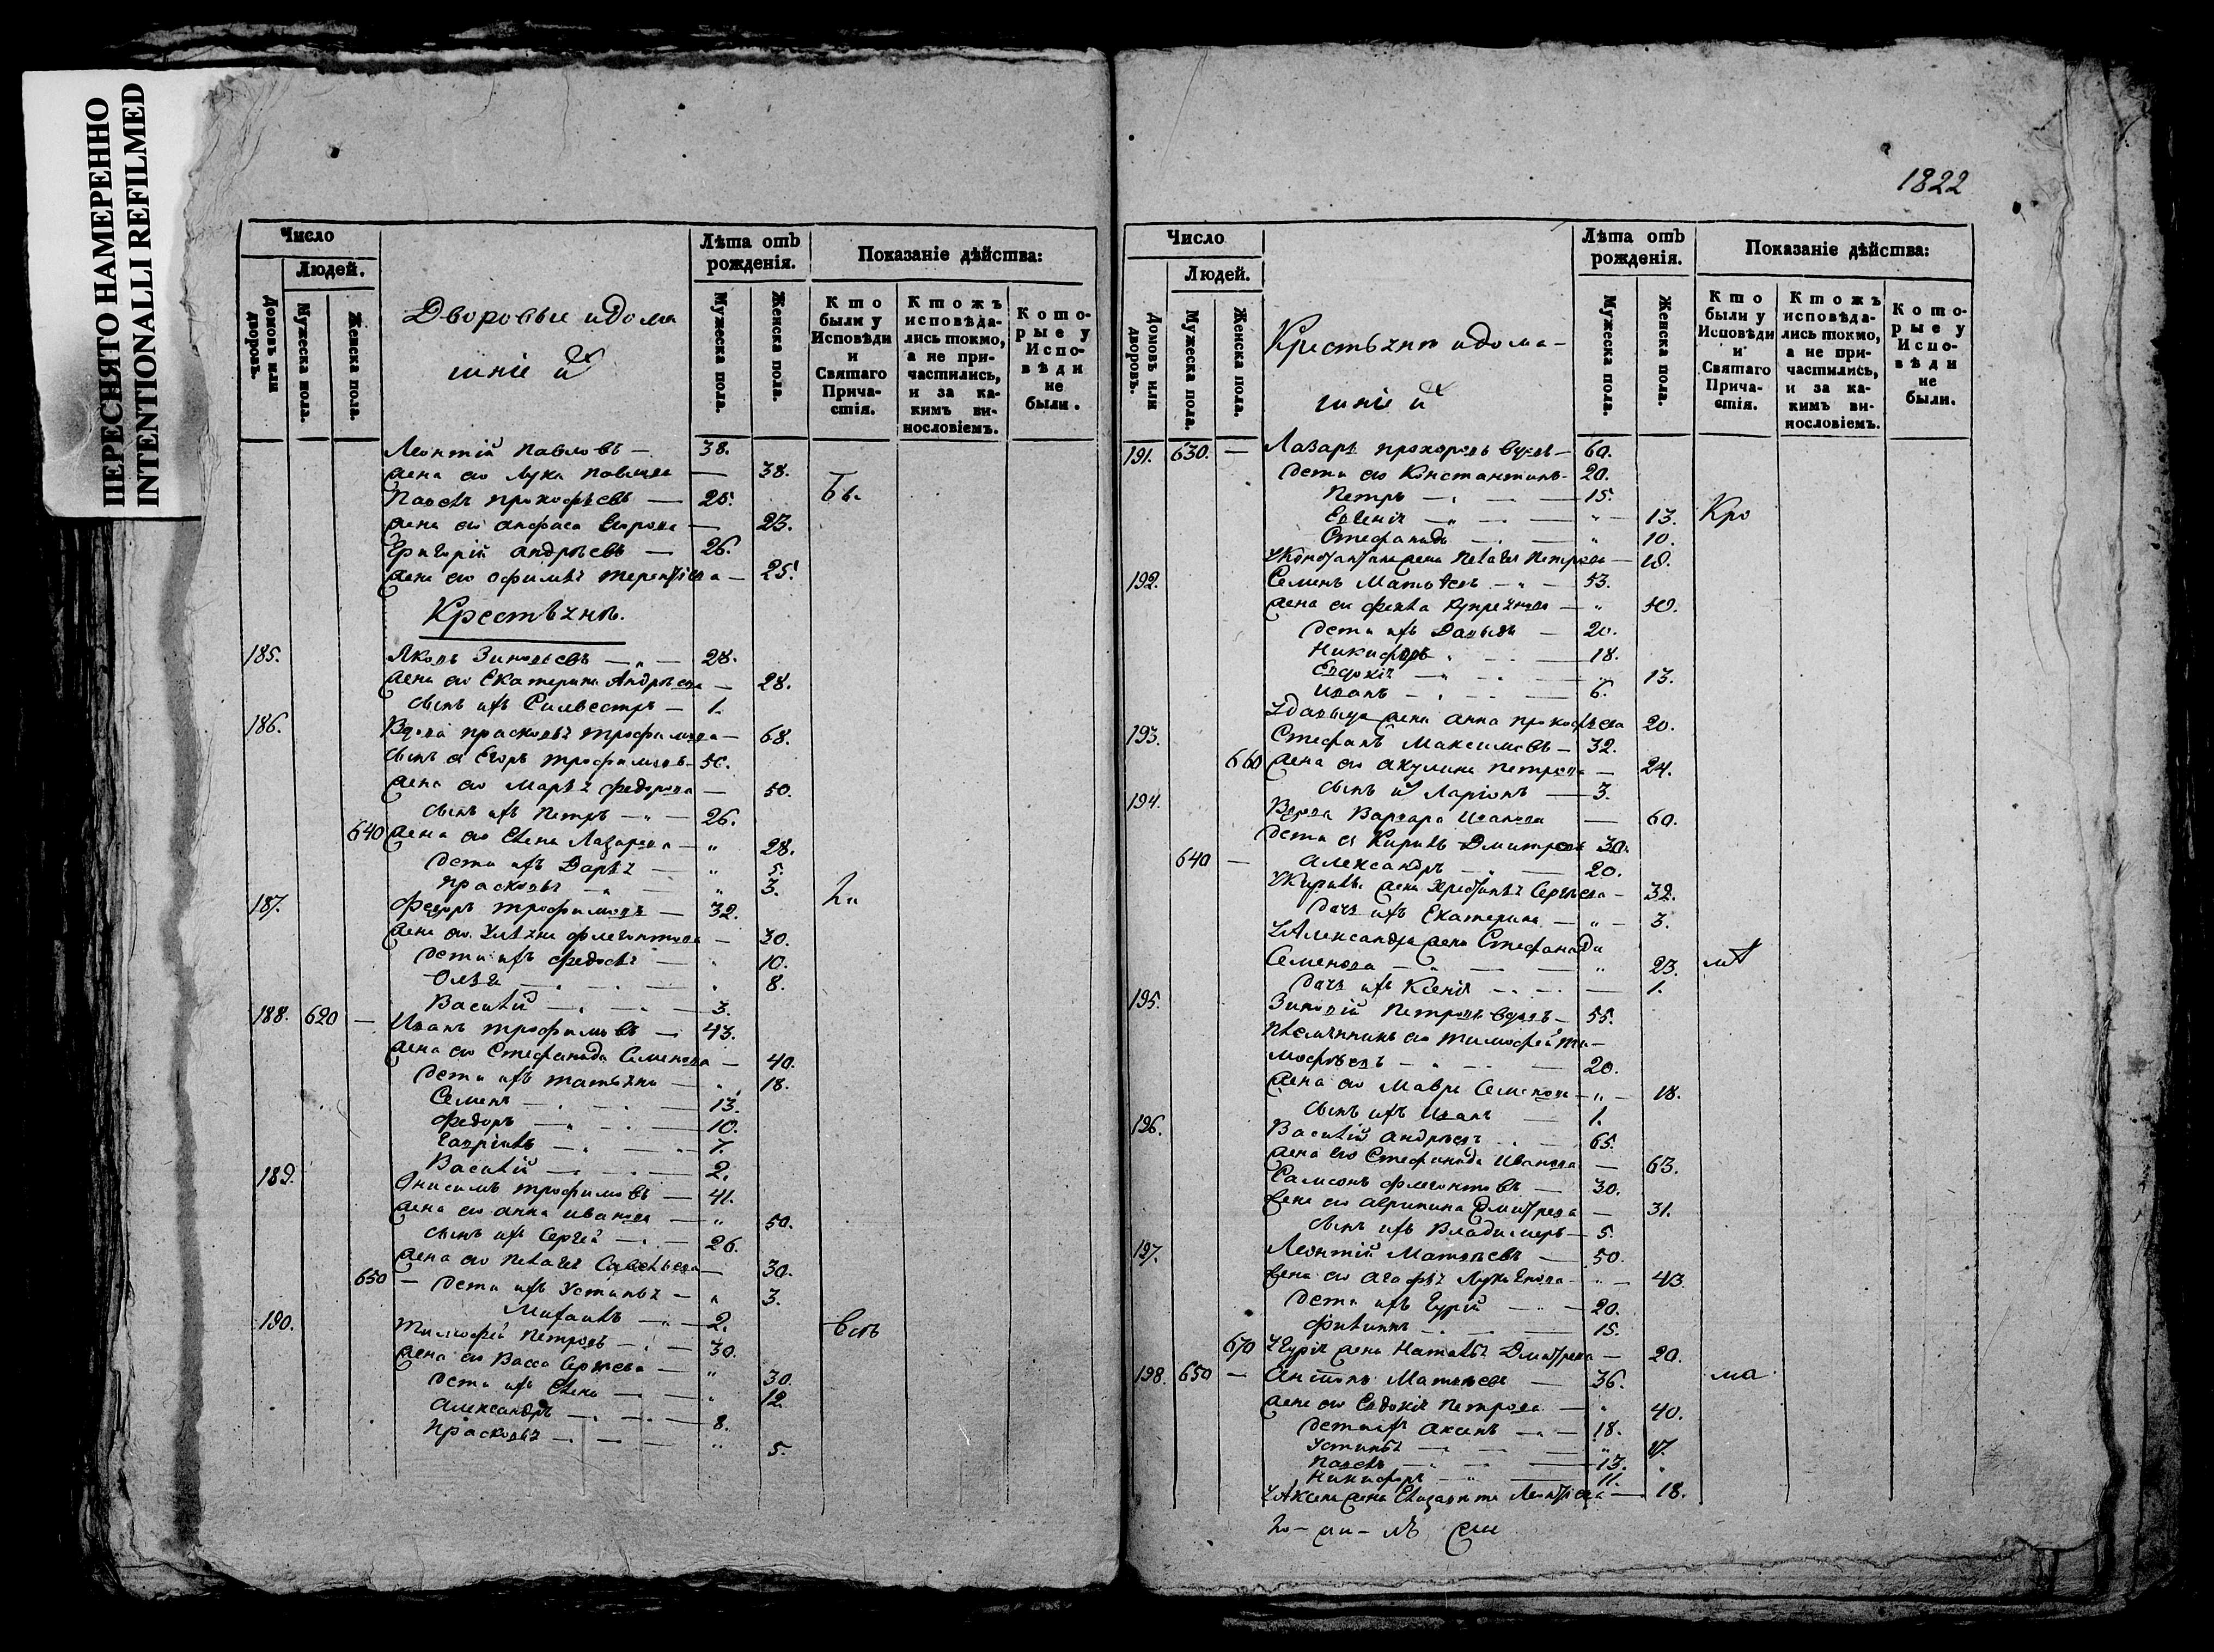 ПЕРЕСНЯТО НАМЕРЕННО
INTENTIONALLI REFILMED
Число
Людей.
Домовъ или дворовъ.
Мужеска пола.
Женска пола.
Дворовые и дома
шніе их
Лѣта отъ рожденія.
Мужеска пола.
Женска пола.
Показаніе дѣйства:
Кто были у Исповѣди и Святаго Причастія.
Ктожъ исповѣдались токмо, а не причастились, и за какимъ винословіемъ.
Которые у Исповѣди не были.
Леонтій Павловъ — 38.
жена его Лук Павлова — 38.
Павелъ прокофьевъ — 25. бы.
жена его анфиса — 23.
Григорій андрѣевъ — 26.
жена его офимья терентіева — 25.
Крестьяне.
185. Яковъ Зиновьевъ — 28.
жена его Екатерина Андрѣева — 28.
сынъ ихъ Силвестръ — 1.
186. Вдова прасковья трофимова — 68.
сынъ ея Егоръ трофимовъ — 50.
жена его Марья федорова — 50.
сынъ ихъ Петръ — 26.
640 жена его Елена Лазарева — 28.
дети ихъ Дарья — 5.
прасковья — 3.
187. Федоръ трофимовъ — 32. ли
жена его Ульяна флегонтова — 30.
дети ихъ федосья — 10.
Ольга — 8.
Василій — 3.
188. 620 — Иванъ трофимовъ — 43.
жена его Стефанида Семенова — 40.
дети ихъ татьяна — 18.
Семенъ — 13.
федоръ — 10.
Гавріилъ — 7.
Василій — 2.
189. Онисимъ трофимовъ — 41.
жена его анна иванова — 50.
сынъ ихъ Сергей — 26.
жена его Пелагея Савельева — 30.
650 — дети ихъ Устинья — 3.
Михаилъ — 2.
190. тимофей Петровъ — 30. всѣ
жена его Васса Сергѣева — 30.
дети ихъ Елена — 12.
александръ — 8.
прасковья — 5.
1822
Число
Людей.
Домовъ или дворовъ.
Мужеска пола.
Женска пола.
Крестьяне и дома-
шніе их
Лѣта отъ рожденія.
Мужеска пола.
Женска пола.
Показаніе дѣйства:
Кто были у Исповѣди и Святаго Причастія.
Ктожъ исповѣдались токмо, а не причастились, и за какимъ винословіемъ.
Которые у Исповѣди не были.
191. 630. — Лазарь прохоровъ вдовъ — 60.
дети его Константинъ — 20.
Петръ — 15.
Евгенія — 13. Кро
Стефанида — 10.
У Константина жена Пелагея Петрова — 18.
192. Семенъ Матвѣевъ — 53.
жена его фекла — 50.
дети ихъ Давыдъ — 20.
Никифоръ — 18.
Евдокія — 13.
иванъ — 6.
У давыда жена анна прокофьева 20.
193. Стефанъ Максимовъ — 32.
660 жена его акулина петрова — 24.
сынъ их Ларіонъ — 3.
194. Вдова Варвара Иванова — 60.
дети ея Кирилъ Дмитріевъ 30.
640 — александръ — 20.
У Кирилы жена Христинья Сергѣева — 32.
дочь ихъ Екатерина — 3.
У Александра жена Стефанида
Семенова — 23. мѣ
дочь ихъ Ксенія — 1.
195. Зиновій Петровъ вдовъ — 55.
племянникъ его тимофей ти-
мофѣевъ — 20.
жена его Мавра Семенова — 18.
сынъ ихъ Иванъ — 1.
196. Василій андрѣевъ — 65.
жена его Стефанида Иванова — 63.
Самсонъ флегонтовъ — 30.
жена его агрипина Дмитрева — 31.
сынъ ихъ Владимеръ — 5.
197. Леонтій Матвѣевъ — 50.
жена его агафья — 43
дети ихъ Гурій — 20.
филипъ — 15.
670 У Гурія жена Наталья Дмитрева — 20.
198. 650 — Антонъ Матвѣевъ — 36. ма
жена его Евдокія Петрова — 40.
дети ихъ аксенъ — 18.
Устинья —
Павелъ — 13.
Никифоръ — 11.
У Аксена жена Елизавета Леонтіева — 18.